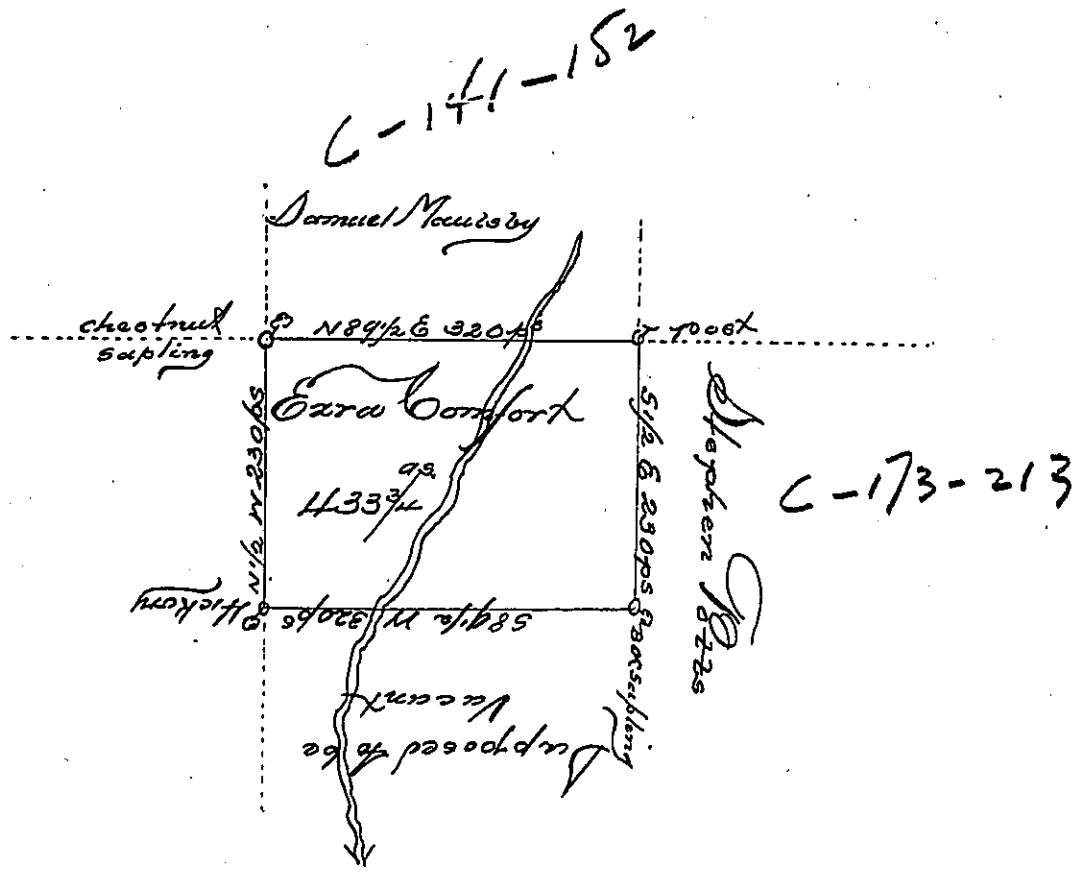 Samuel Maulsby
chestnut
sapling
N 89 1/2 E 320 ps
Post
Ezra Comfort
as
433 3/4
N 1/2 W 230 ps
S 1/2 E 230 ps
Stephen
C-173-213
Hickory
S 89 1/2 W 320 ps
sapling
Supposed to be
Vacant